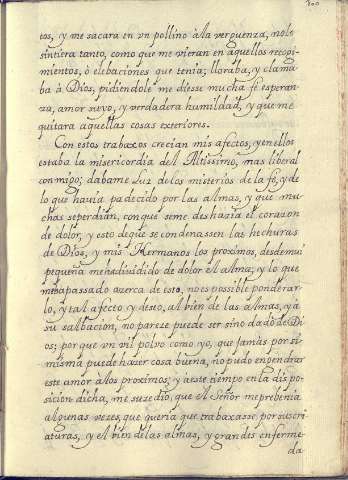 100
tos, y me sacara en vn pollino à la verguenza, no lo
sintiera tanto, como que me vieran en aquellos recogi-
mientos, ò elebaciones que tenia; lloraba, y clama
ba à Dios, pidiendole me diesse mucha fe esperan
za, amor suyo, y verdadera humildad, y que me
quitara aquellas cosas exteriores.
Con estos trabaxos crecian mis afectos, y en ellos
estaba la misericordia del Altissimo, mas liberal
conmigo; dabame Luz de los misterios de la fe, y de
lo que havia padecido por las almas, y que mu-
chas seperdian, con que seme deshazia el corazon
de dolor, y esto de que se condenassen las hechuras
de Dios, y mis Hermanos los proximos, desde mui
pequeña me ha dividido de dolor el Alma; y lo que
me ha passado azerca de esto, no es possible ponderar
lo, y tal afecto y deseo, al bien de las almas, y à
su salbacion, no pareze puede ser sino dado de Di
os; por que vn vil polvo como yo, que jamàs por si
misma puede hazer cosa buena, no pudo engendrar
este amor à los proximos; y à este tiempo en la dispo
sicion dicha, me suzedio, que el Señor me prebenia
algunas vezes, que queria que trabaxasse por sus cri-
aturas, y el bien de las almas, y grandes enferme-
da